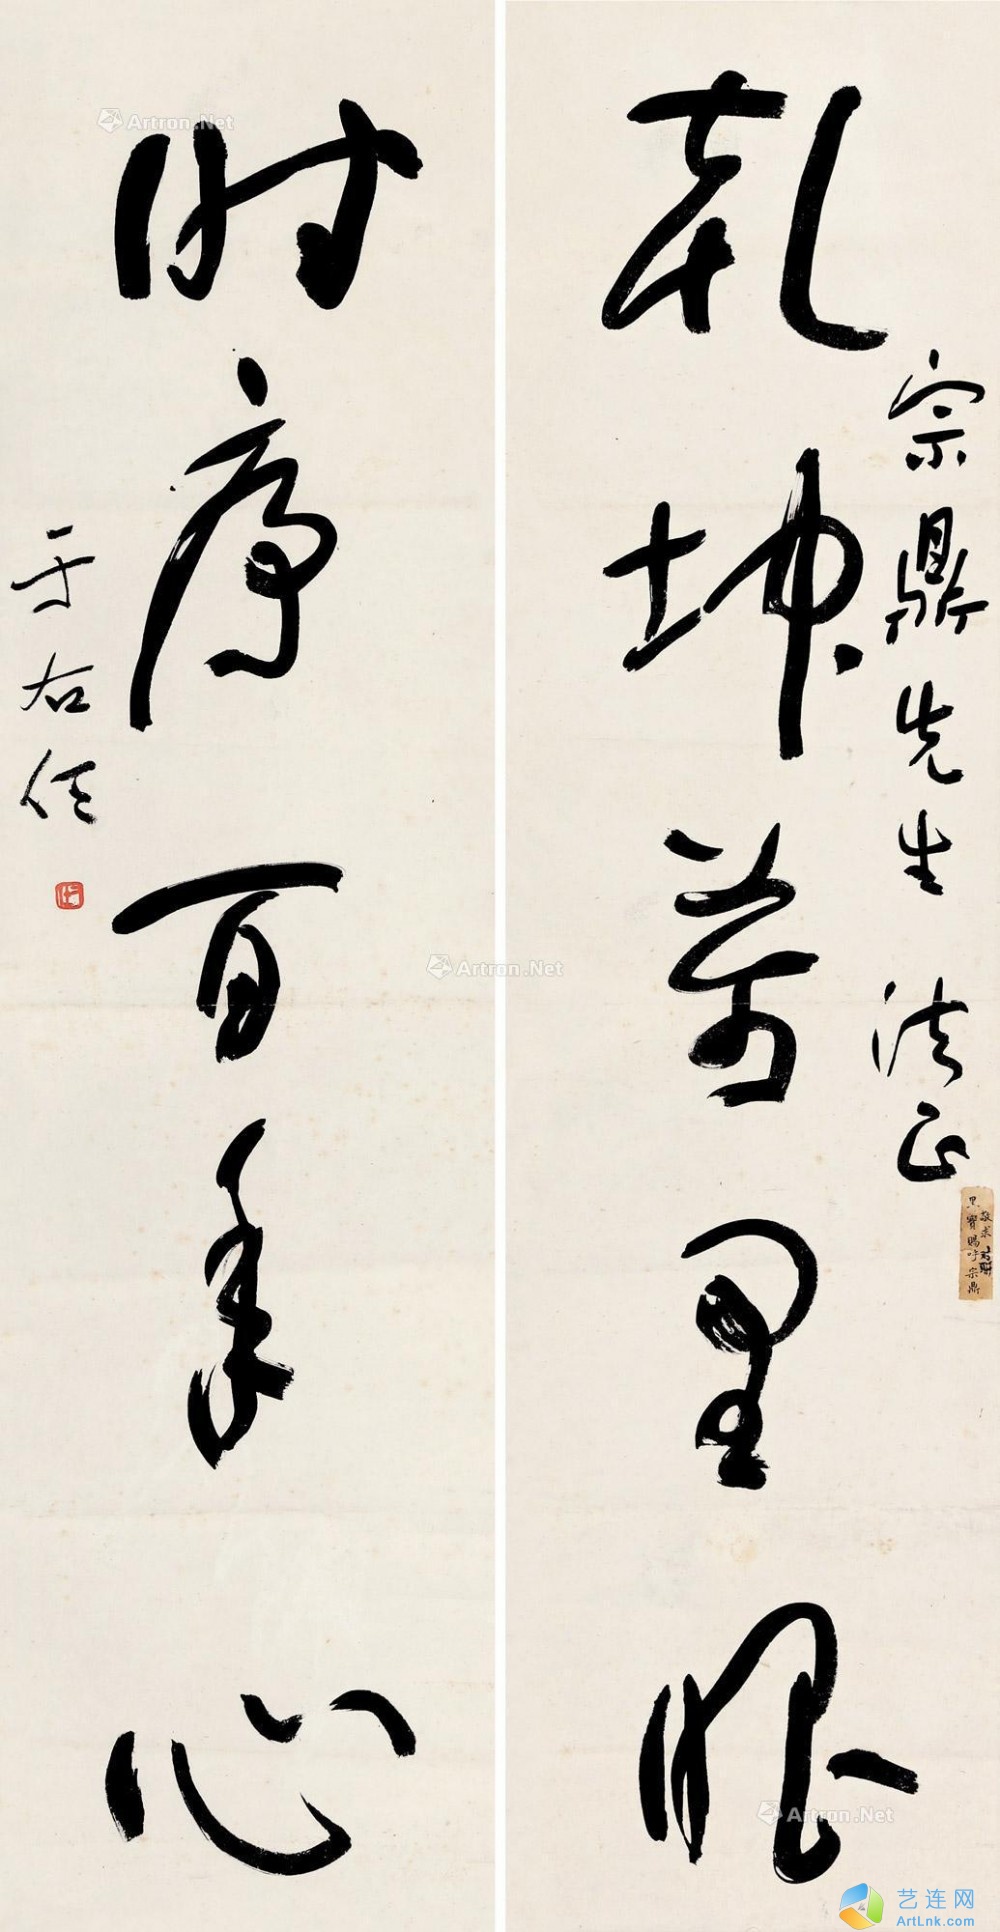 乾坤萬里眼
宗鼎先生 法正
時序百年心
于右任
Artron.Net
Artron.Net
Artron.Net
艺连网
ArtLnk.com